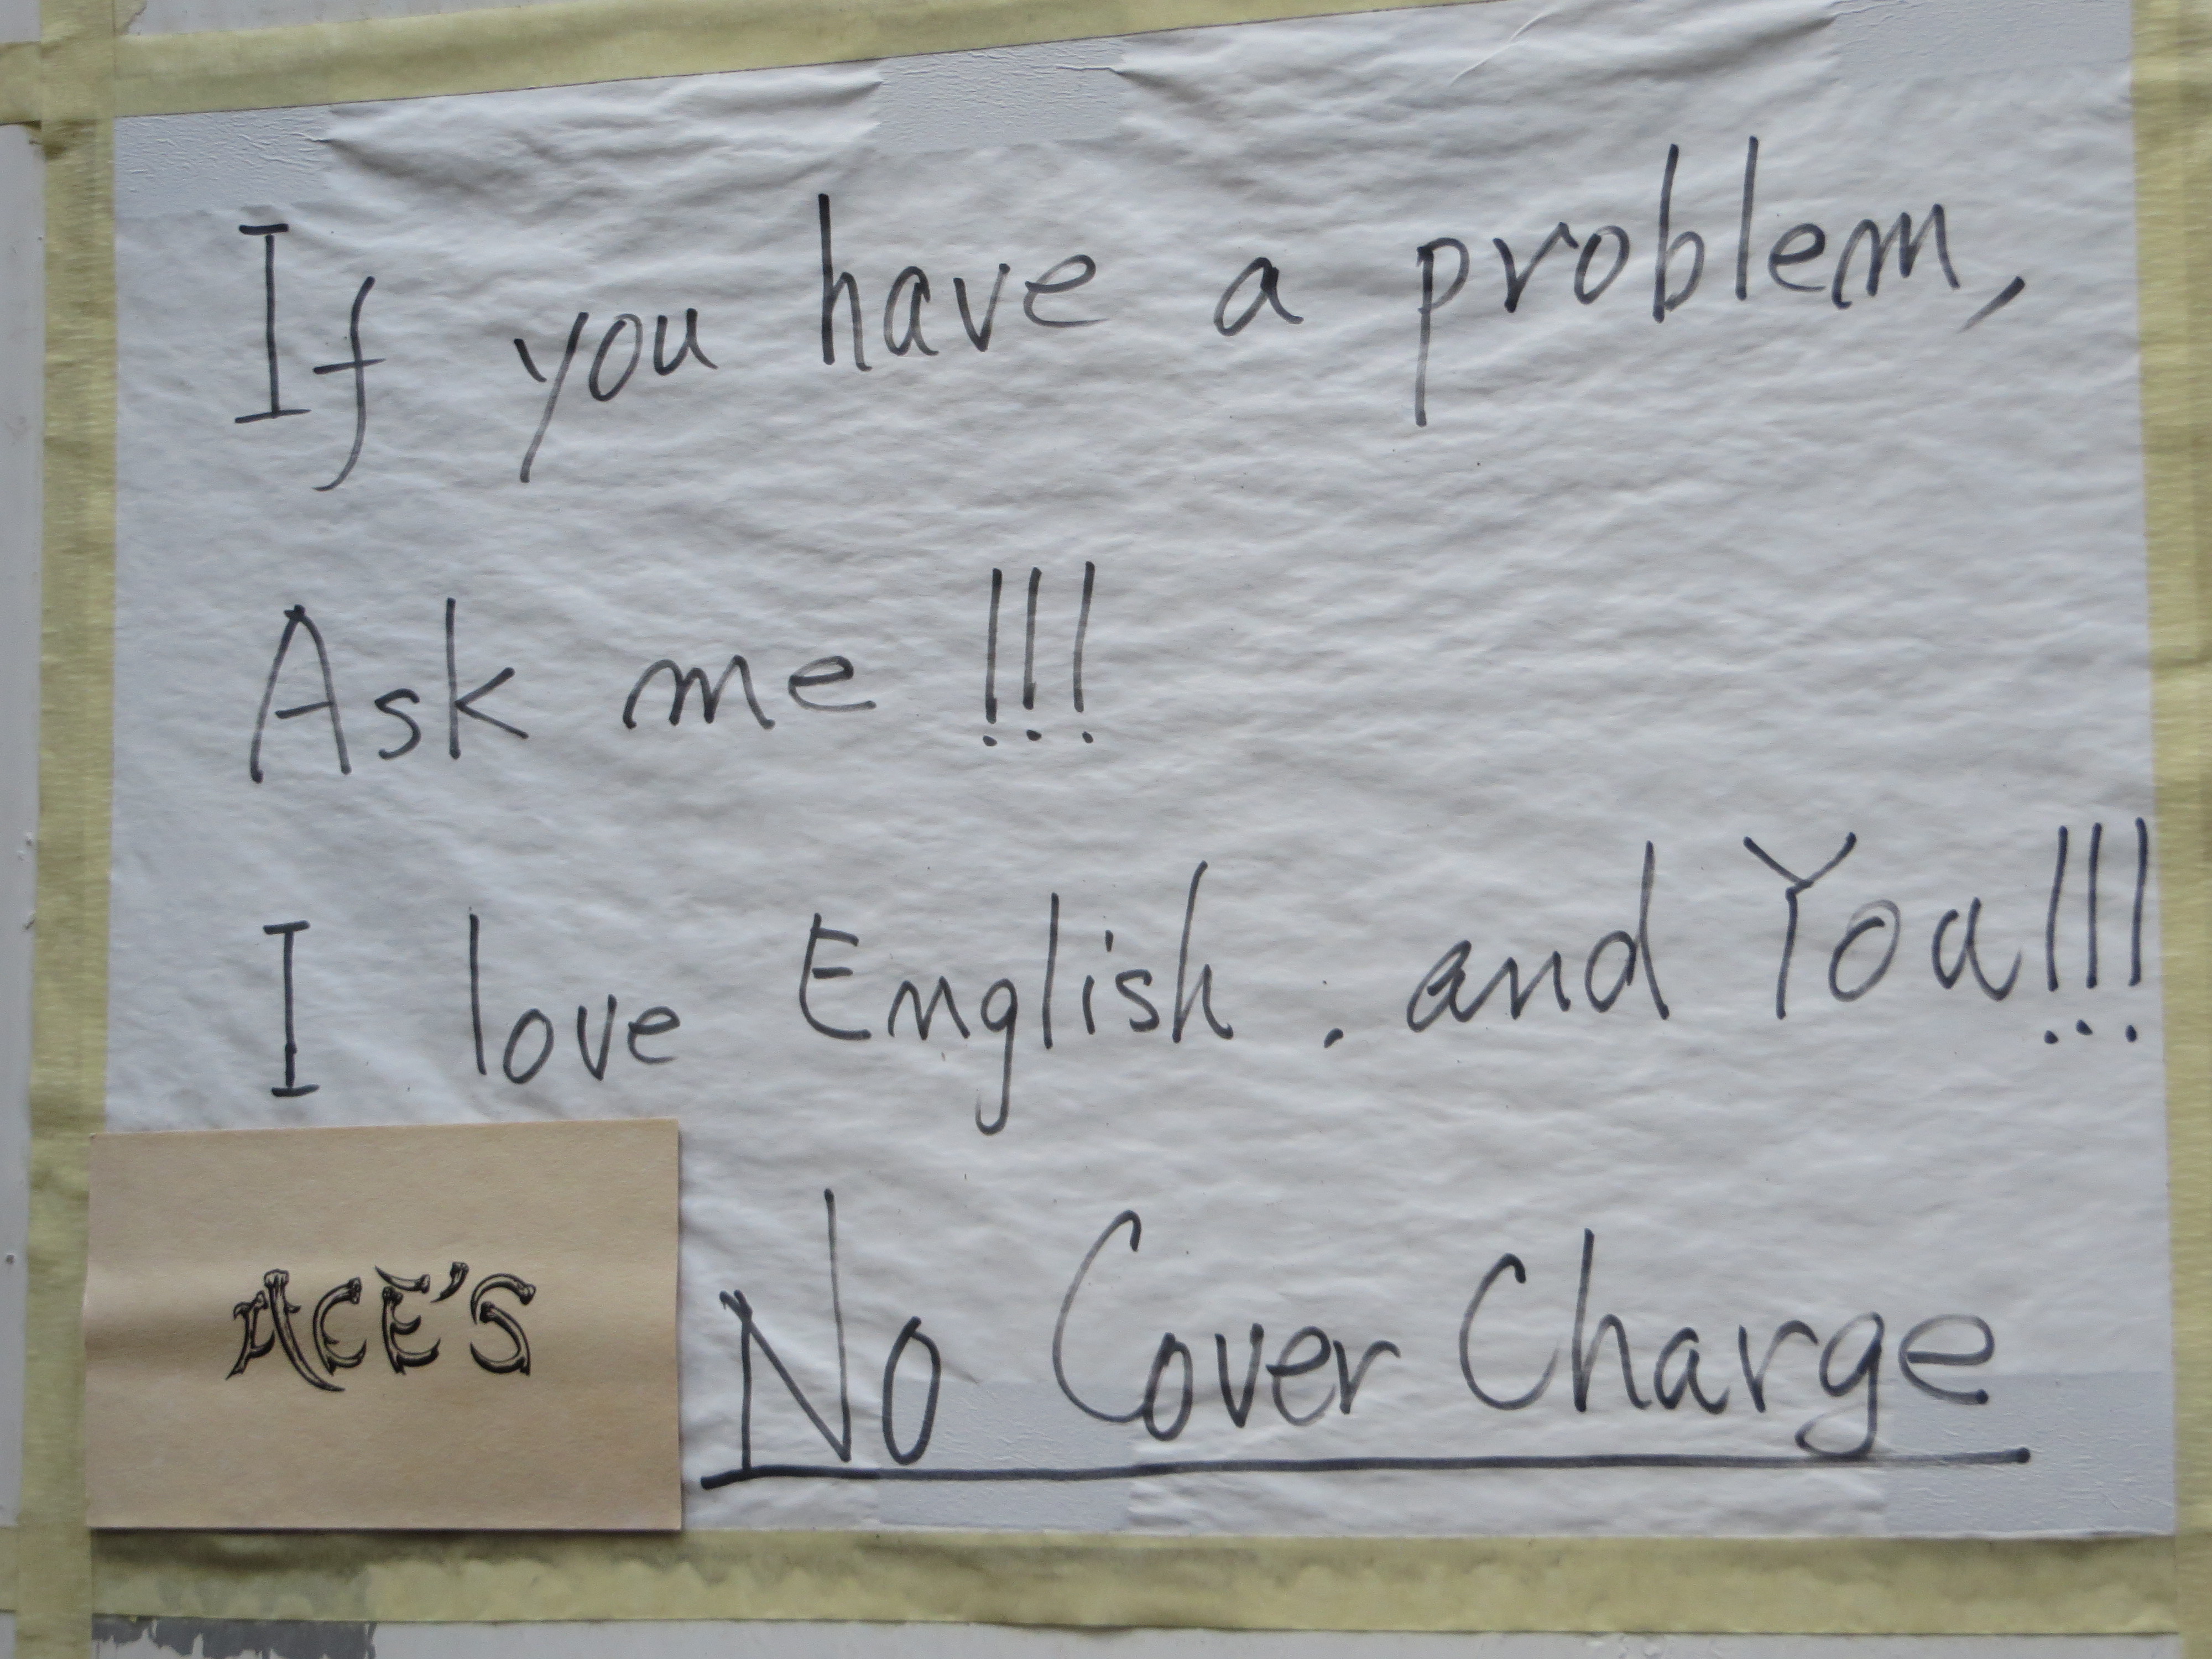 If you have a problem,
Ask me !!!
I love English . and You!!!
ACE'S
No Cover Charge